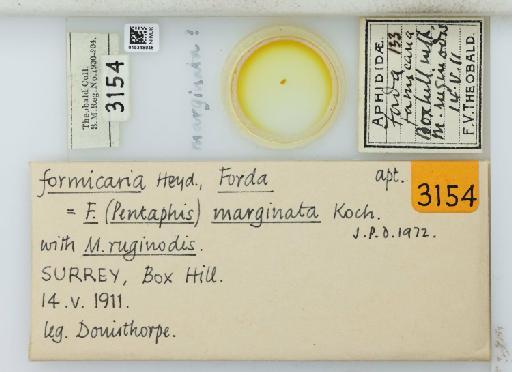 Theobald Coll.
B.M. Reg. No. 1930-204.
3154
marginata!
APHIDIDÆ.
Forda 133
formicaria
Boxhill
M. ruginodis
14.V.11
F.V. THEOBALD.
formicaria Heyd., Forda apt.
3154
= F. (Pentaphis) marginata Koch.
J.P.D. 1972.
with M. ruginodis.
SURREY, Box Hill.
14.v.1911.
leg. Donisthorpe.